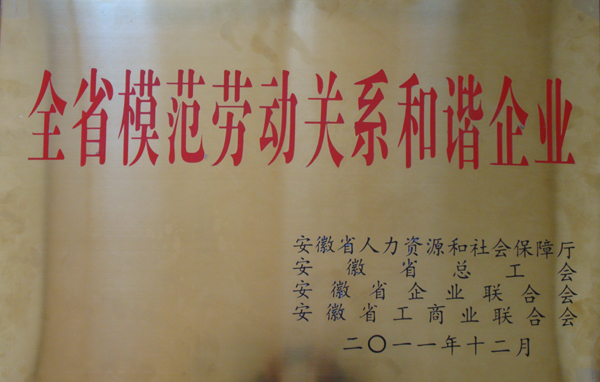 全省模范劳动关系和谐企业
安徽省人力资源和社会保障厅
安徽省总工会
安徽省企业联合会
安徽省工商业联合会
二〇一一年十二月